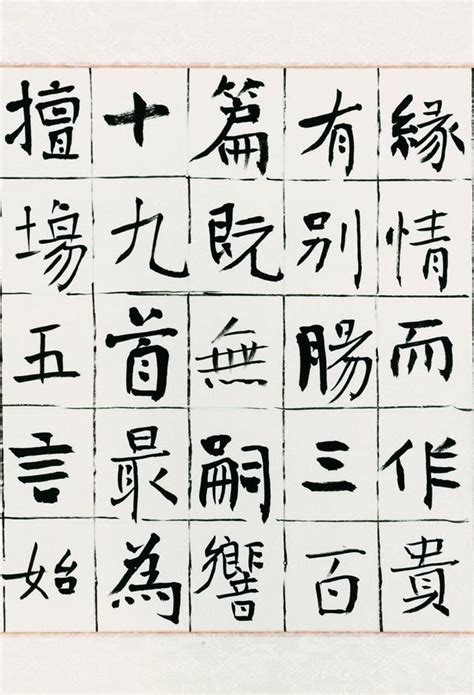 緣情而作貴
有別腸三百
篇既無嗣響
十九首最為
擅場五言始